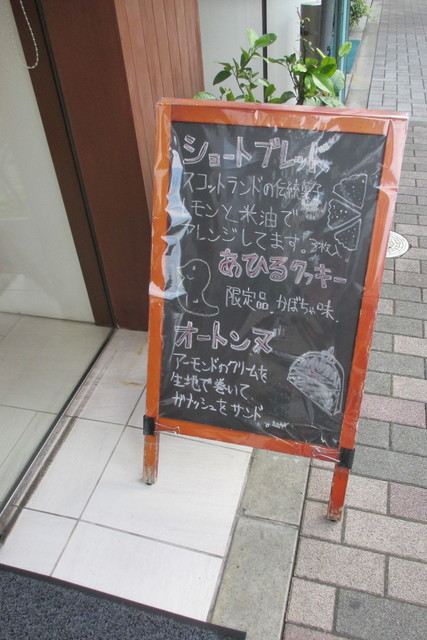 ショートブレッド
スコットランドの伝統菓子
レモンと米油で
アレンジしてます。3枚入
あひるクッキー
限定品 かぼちゃ味
オートンヌ
アーモンドのクリームを
生地で巻いて
ガナッシュをサンド